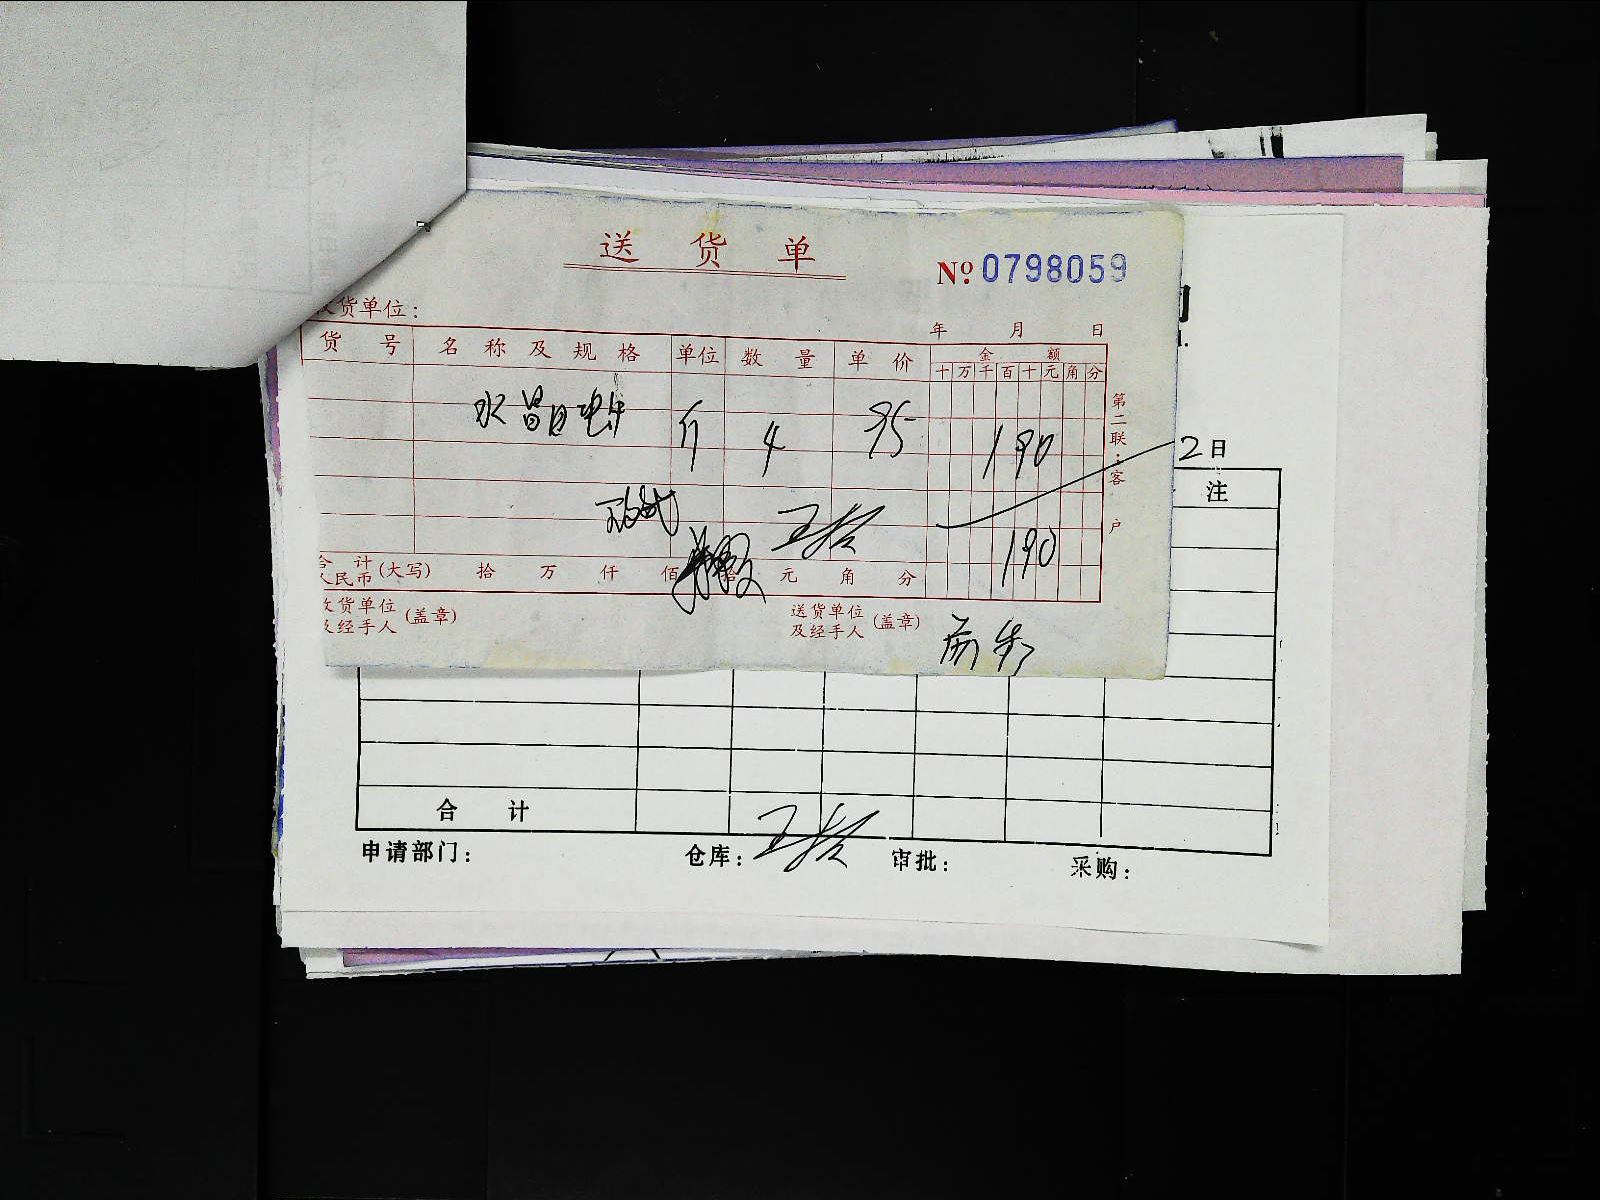 送 货 单
No. 0798059
收货单位:
年 月 日
货 号 名 称 及 规 格 单位 数 量 单 价 金 额
十 万 千 百 十 元 角 分
斤 4 95 190
2日
注
王
190
合 计
人民币(大写) 拾 万 仟 佰 拾 元 角 分
收货单位
及经手人 (盖章)
送货单位
及经手人 (盖章)
第二联:客 户
合 计
申请部门: 仓库: 王 审批: 采购: